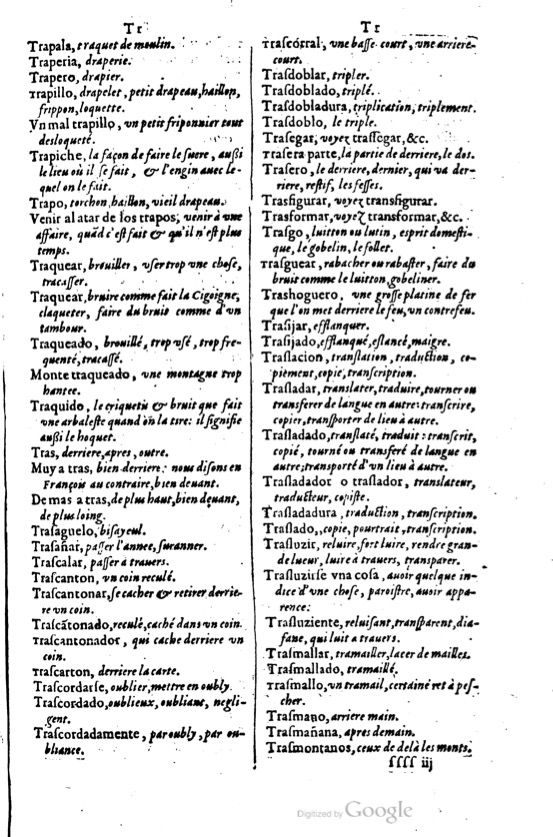 Tr
Trapala, traquet de moulin.
Traperia, draperie.
Trapero, drapier.
Trapillo, drapelet, petit drapeau, haillon,
frippon, loquette.
Vn mal trapillo, vn petit friponnier tout
desloqueté.
Trapiche, la façon de faire le sucre, aussi
le lieu où il se fait, & l'engin auec le-
quel on le fait.
Trapo, torchon, haillon, vieil drapeau.
Venir al atar de los trapos, venir à vne
affaire, quãd c'est fait & qu'il n'est plus
temps.
Traquear, brouiller, vser trop vne chose,
tracasser.
Traquear, bruire comme fait la Cigoigne,
claqueter, faire du bruit comme d'vn
tambour.
Traqueado, brouillé, trop vsé, trop fre-
quenté, tracassé.
Monte traqueado, vne montagne trop
hantee.
Traquido, le criquetis & bruit que fait
vne arbaleste quand on la tire: il signifie
aussi le hoquet.
Tras, derriere, apres, outre.
Muy a tras, bien derriere: nous disons en
François au contraire, bien deuant.
De mas a tras, de plus haut, bien deuant,
de plus loing.
Trasaguelo, bisayeul.
Trasañar, passer l'annee, suranner.
Trascalar, passer à trauers.
Trascanton, vn coin reculé.
Trascantonar, se cacher & retirer derrie-
re vn coin.
Trascãtonado, reculé, caché dans vn coin.
Trascantonador, qui cache derriere vn
coin.
Trascarton, derriere la carte.
Trascordarse, oublier, mettre en oubly.
Trascordado, oublieux, oubliant, negli-
gent.
Trascordadamente, par oubly, par ou-
bliance.
Tr
Trascorral, vne basse court, vne arriere-
court.
Trasdoblar, tripler.
Trasdoblado, triplé.
Trasdobladura, triplication, triplement.
Trasdoblo, le triple.
Trasegar, voyez trassegar, &c.
Trasera parte, la partie de derriere, le dos.
Trasero, le derriere, dernier, qui va der-
riere, restif, les fesses.
Trasfigurar, voyez transfigurar.
Trasformar, voyez transformar, &c.
Trasgo, luitton ou lutin, esprit domesti-
que, le gobelin, le follet.
Trasguear, rabacher ou rabaster, faire du
bruit comme le luitton, gobeliner.
Trashoguero, vne grosse platine de fer
que l'on met derriere le feu, vn contrefeu.
Trasijar, efflanquer.
Trasijado, efflanqué, eslancé, maigre.
Traslacion, translation, traduction, co-
piement, copie, transcription.
Trasladar, translater, traduire, tourner ou
transferer de langue en autre: transcrire,
copier, transporter de lieu à autre.
Trasladado, translaté, traduit: transcrit,
copié, tourné ou transferé de langue en
autre; transporté d'vn lieu à autre.
Trasladador o traslador, translateur,
traducteur, copiste.
Trasladadura, traduction, transcription.
Traslado, copie, pourtrait, transcription.
Trasluzir, reluire, fort luire, rendre gran-
de lueur, luire à trauers, transparer.
Trasluzirse vna cosa, auoir quelque in-
dice d'vne chose, paroistre, auoir appa-
rence:
Trasluziente, reluisant, transparent, dia-
fane, qui luit a trauers.
Trasmallar, tramailler, lacer de mailles.
Trasmallado, tramaillé.
Trasmallo, vn tramail, certaine ret à pes-
cher.
Trasmano, arriere main.
Trasmañana, apres demain.
Trasmontanos, ceux de delà les monts.
ssss iij
Digitized by Google